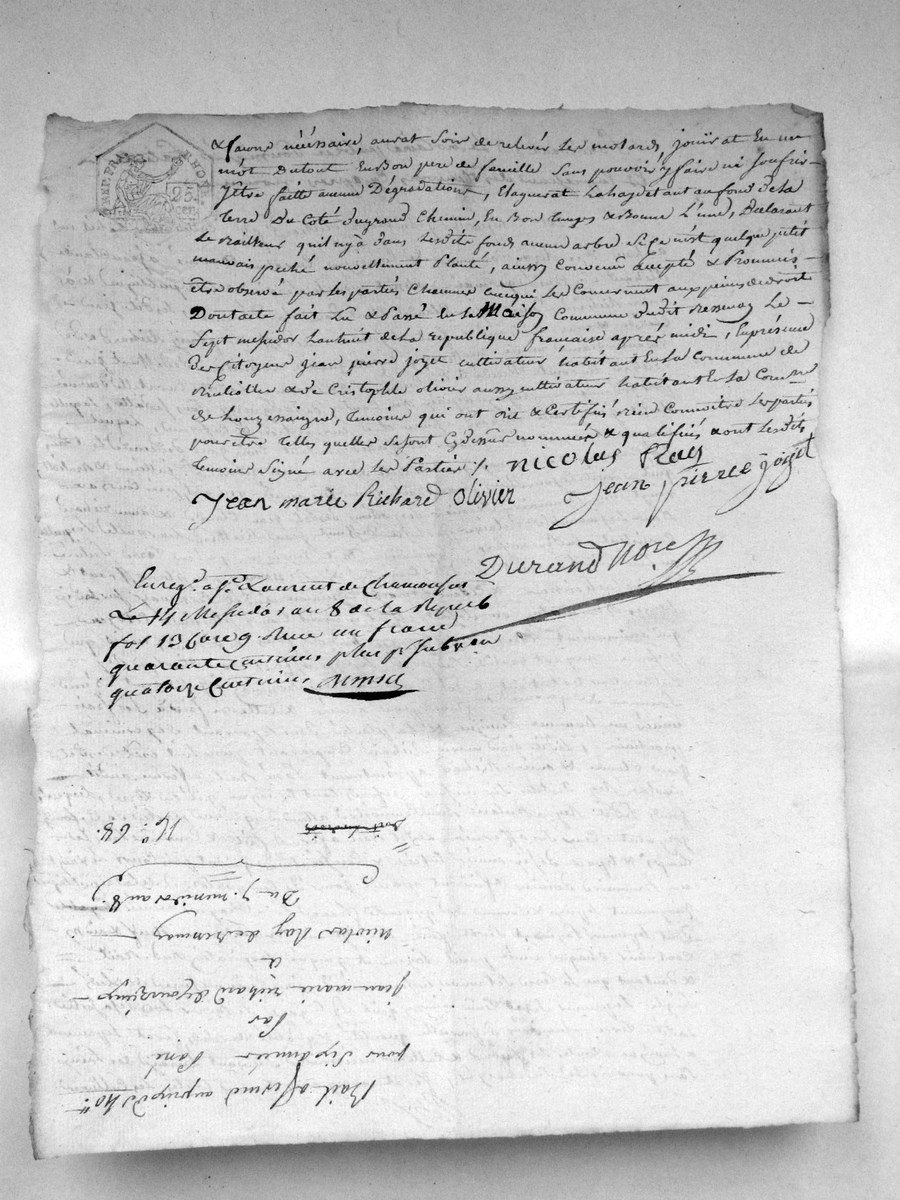 & saison nécéssaire, aurat soin de relever les motards jouirat En un
mot Du tout En Bon pere de famille sans pouvoir y faire ni souffrir
Être faitte aucune Dégradations, Elaguerat La haye étant au fond de la
terre Du Coté du grand Chemin, En Bon temps & Bonne Lune, Declarant
Le Bailleur qu'il n'y a dans lesdits fonds aucun arbre si Ce n'est quelque petit
mauvais peché nouvellement Planté, ainsy Convenu accepté & Promis
Être observé par les parties Chacune En ce qui les Concernent aux peines de droit
Dont acte fait Lu & Passé En la Maison Commune dudit Ressenay Le
Sept messidor L'an huit de la republique française aprés midi, En présence
des Citoyens jean pierre joyet cultivateur habitant En La Commune de
& de Cristophle olivier aussy cultivateur habitant En La Comune
de Longessaigne, temoins qui ont dit & Certifiés bien Connoitre les parties
pour être telles quelles se sont Cy dessus nommées & qualifiés & ont lesdits
temoins Signé avec les Parties ./. nicolas Ray
Jean marie Richard olivier Jean pierre joyet
Durand Nore
Enreg. a St. Laurent de Chamousset
Le 14 Messidor an 8 de la Repub
fol 13 Case 9. Reçu un franc
quarante centimes, plus pr subvon
quatorze Centimes.
Bail a ferme au prix de 40 tt
pour Six années
Par
jean-marie richard de
a
Nicolas Ray de Ressenay
Du 7. messidor an 8.
N.o 68.